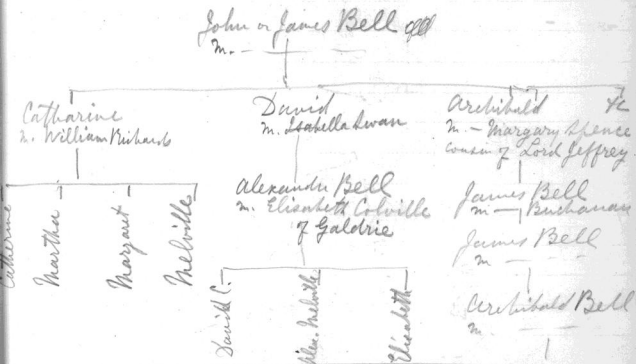 John or James Bell
m. —
Catharine
m. William Richards
Catherine
Martha
Margaret
Melville
David
m. Isabella Swan
Alexander Bell
m. Elisabeth Colville
of Galdrie
David C.
Alex. Melville
Elisabeth
Archibald &c
m. — Margary Spence
cousin of Lord Jeffrey
James Bell
m — Buchanan
James Bell
m —
Archibald Bell
m